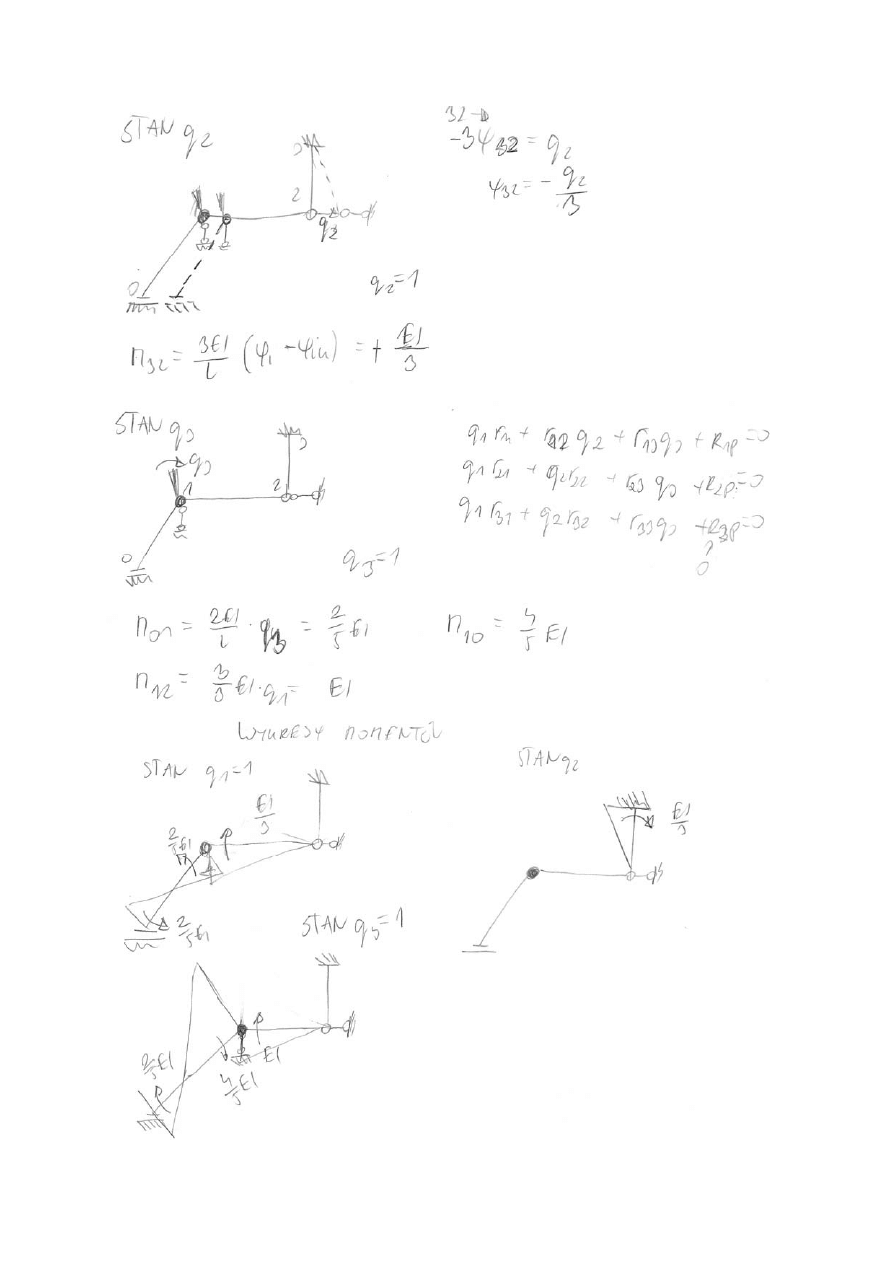 STAN q2
32→
-3ψ32 = q2
ψ32 = - q2/3
3
2
q2
0
q2=1
M32 = 3EI/L (φi - ψin) = + EI/3
STAN q3
q3
1
2
3
0
q3=1
q1 r11 + r12 q2 + r13 q3 + R1p=0
q1 r21 + q2 r22 + r23 q3 + R2p=0
q1 r31 + q2 r32 + r33 q3 + R3p=0
0
M01 = 2EI/L · q3 = 2/5 EI
M10 = 4/5 EI
M12 = 3/3 EI·q1= EI
WYKRESY MOMENTÓW
STAN q1=1
EI/3
2/5 EI
2/5 EI
STAN q2
EI/3
STAN q3=1
2/5 EI
4/5 EI
EI